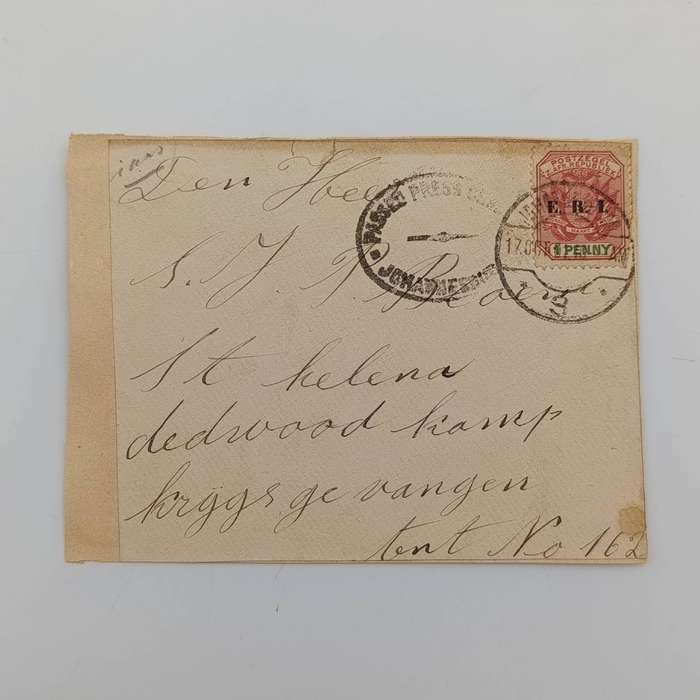 Den Heer
S. J. P.
St helena
dedwood kamp
krygs ge vangen
tent No 162
PASSED PRESS CEN
JOHANNESBURG
POSTZEGEL
Z. AFR. REPUBLIEK
E. R. I.
1 PENNY
17.OC
3